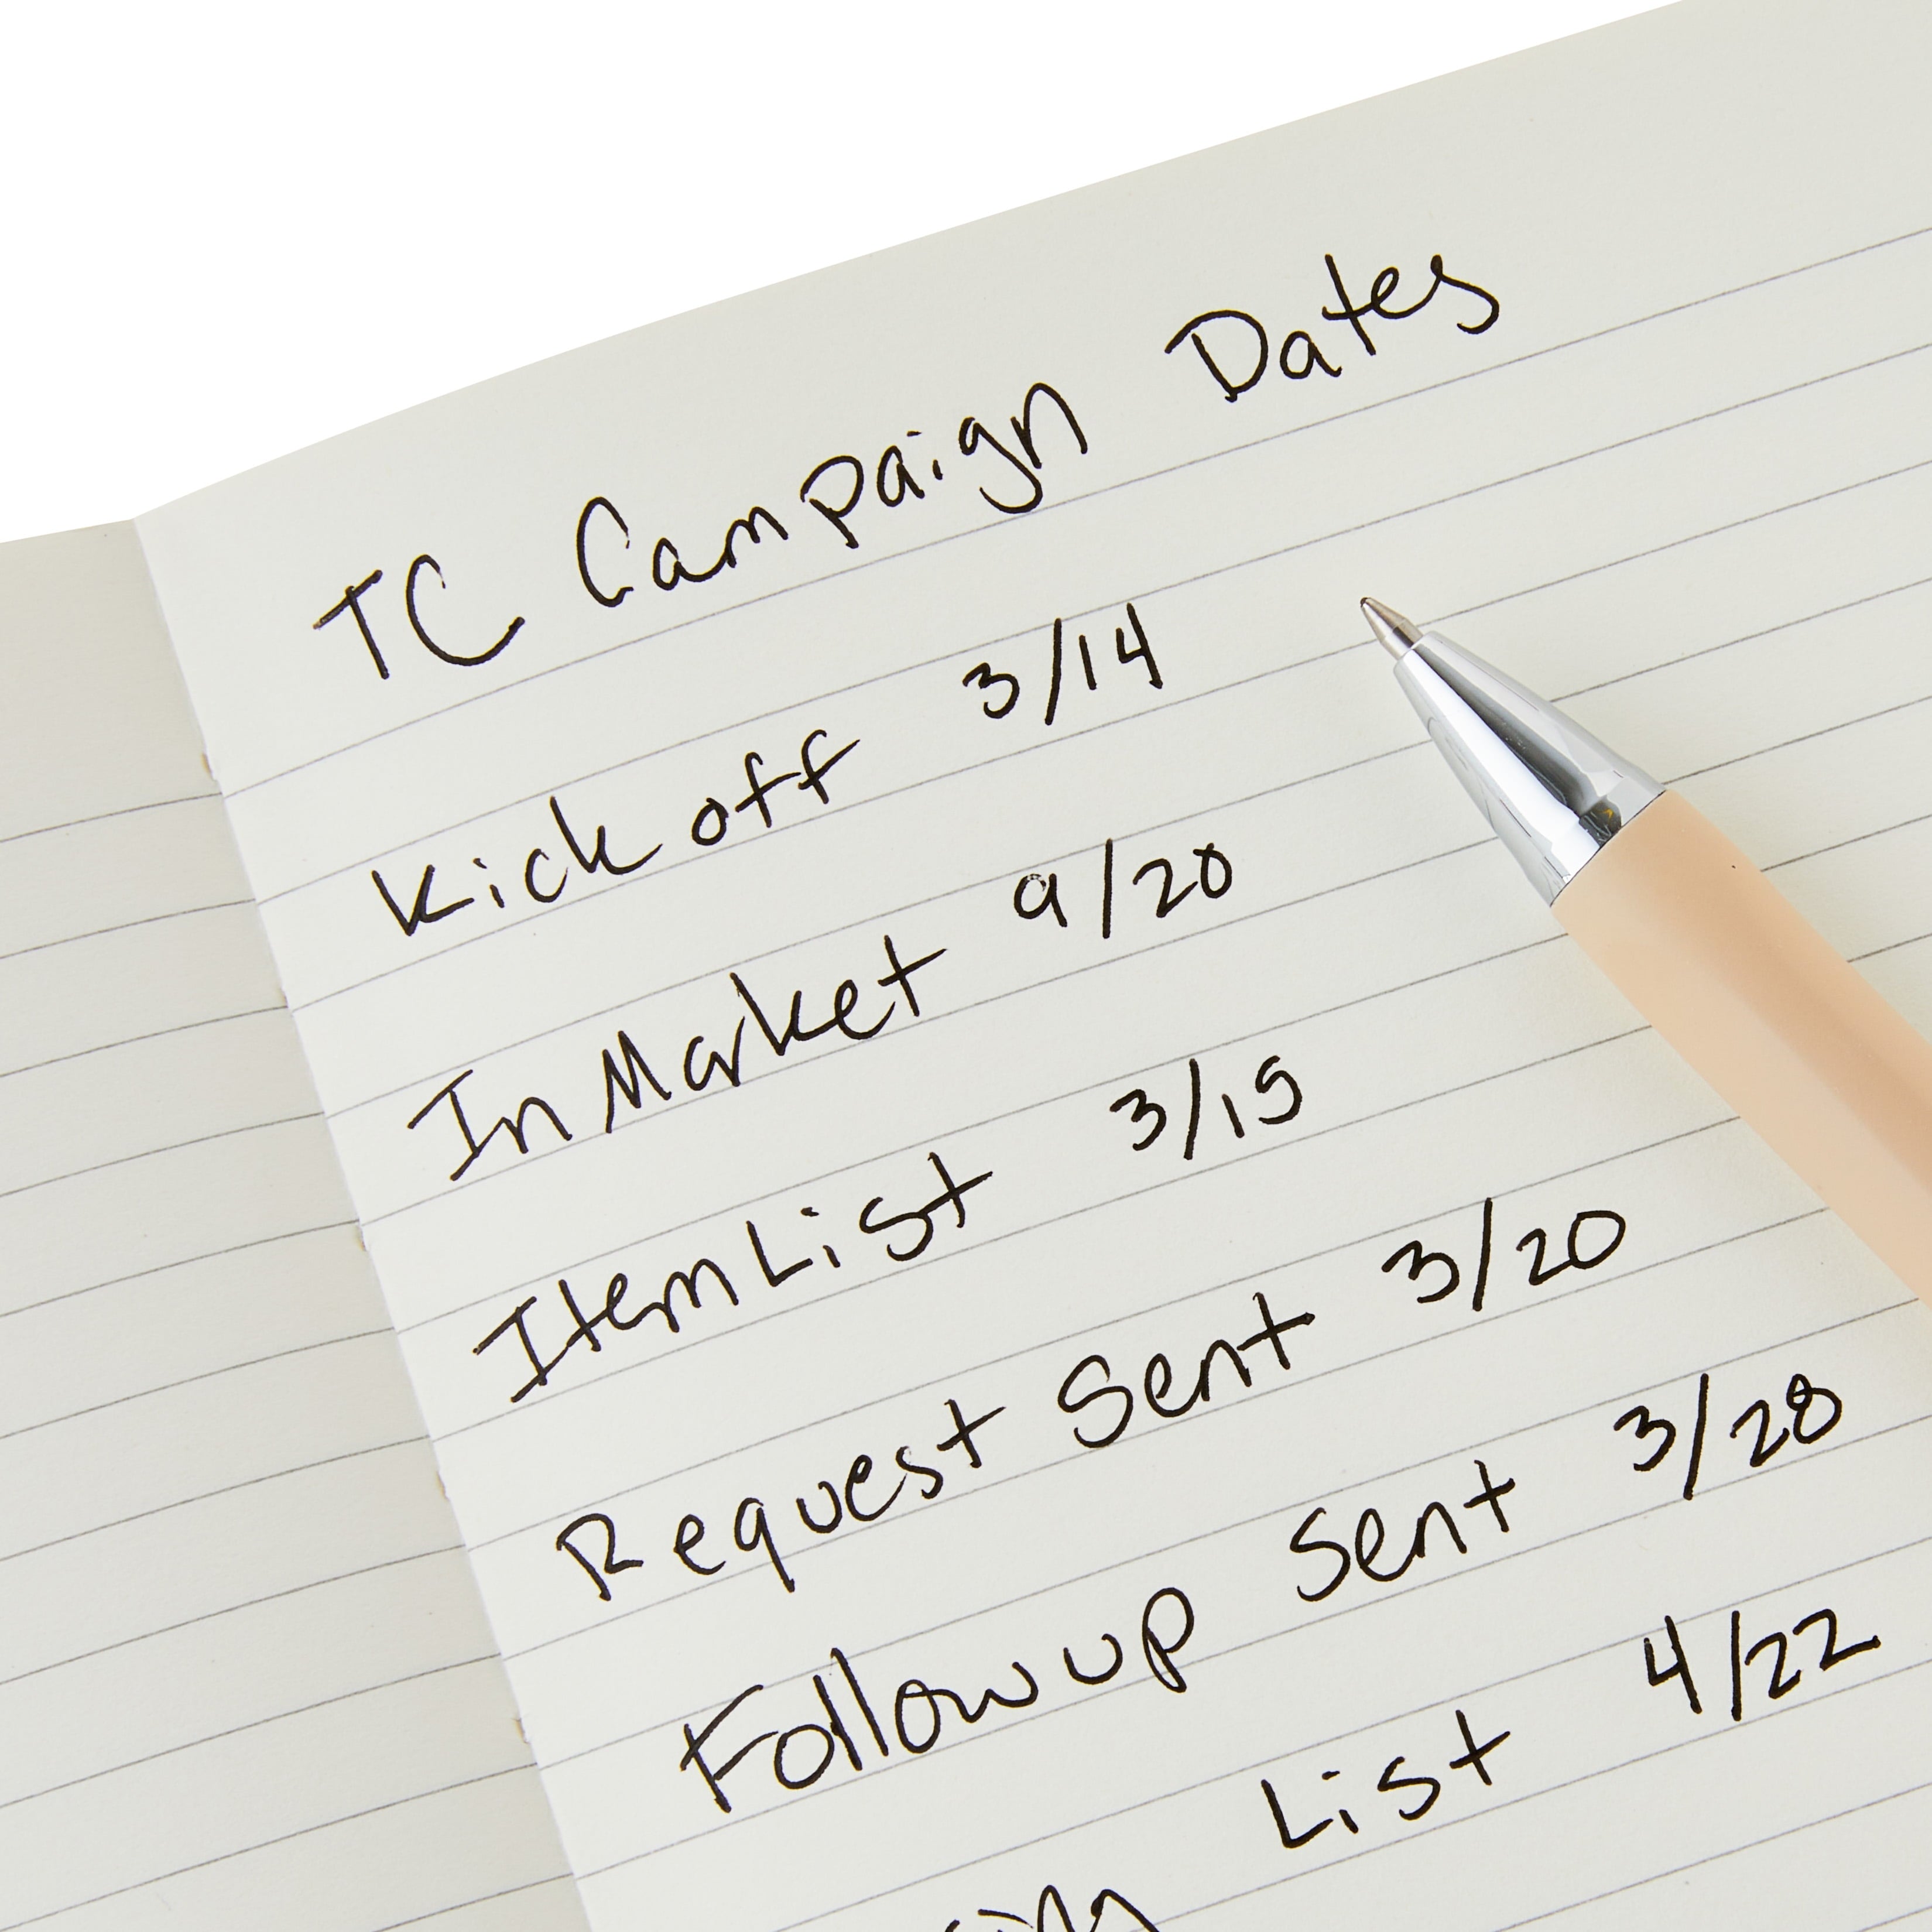 TC Campaign Dates
Kick off 3/14
In Market 9/20
Item List 3/15
Request Sent 3/20
Follow up Sent 3/28
List 4/22